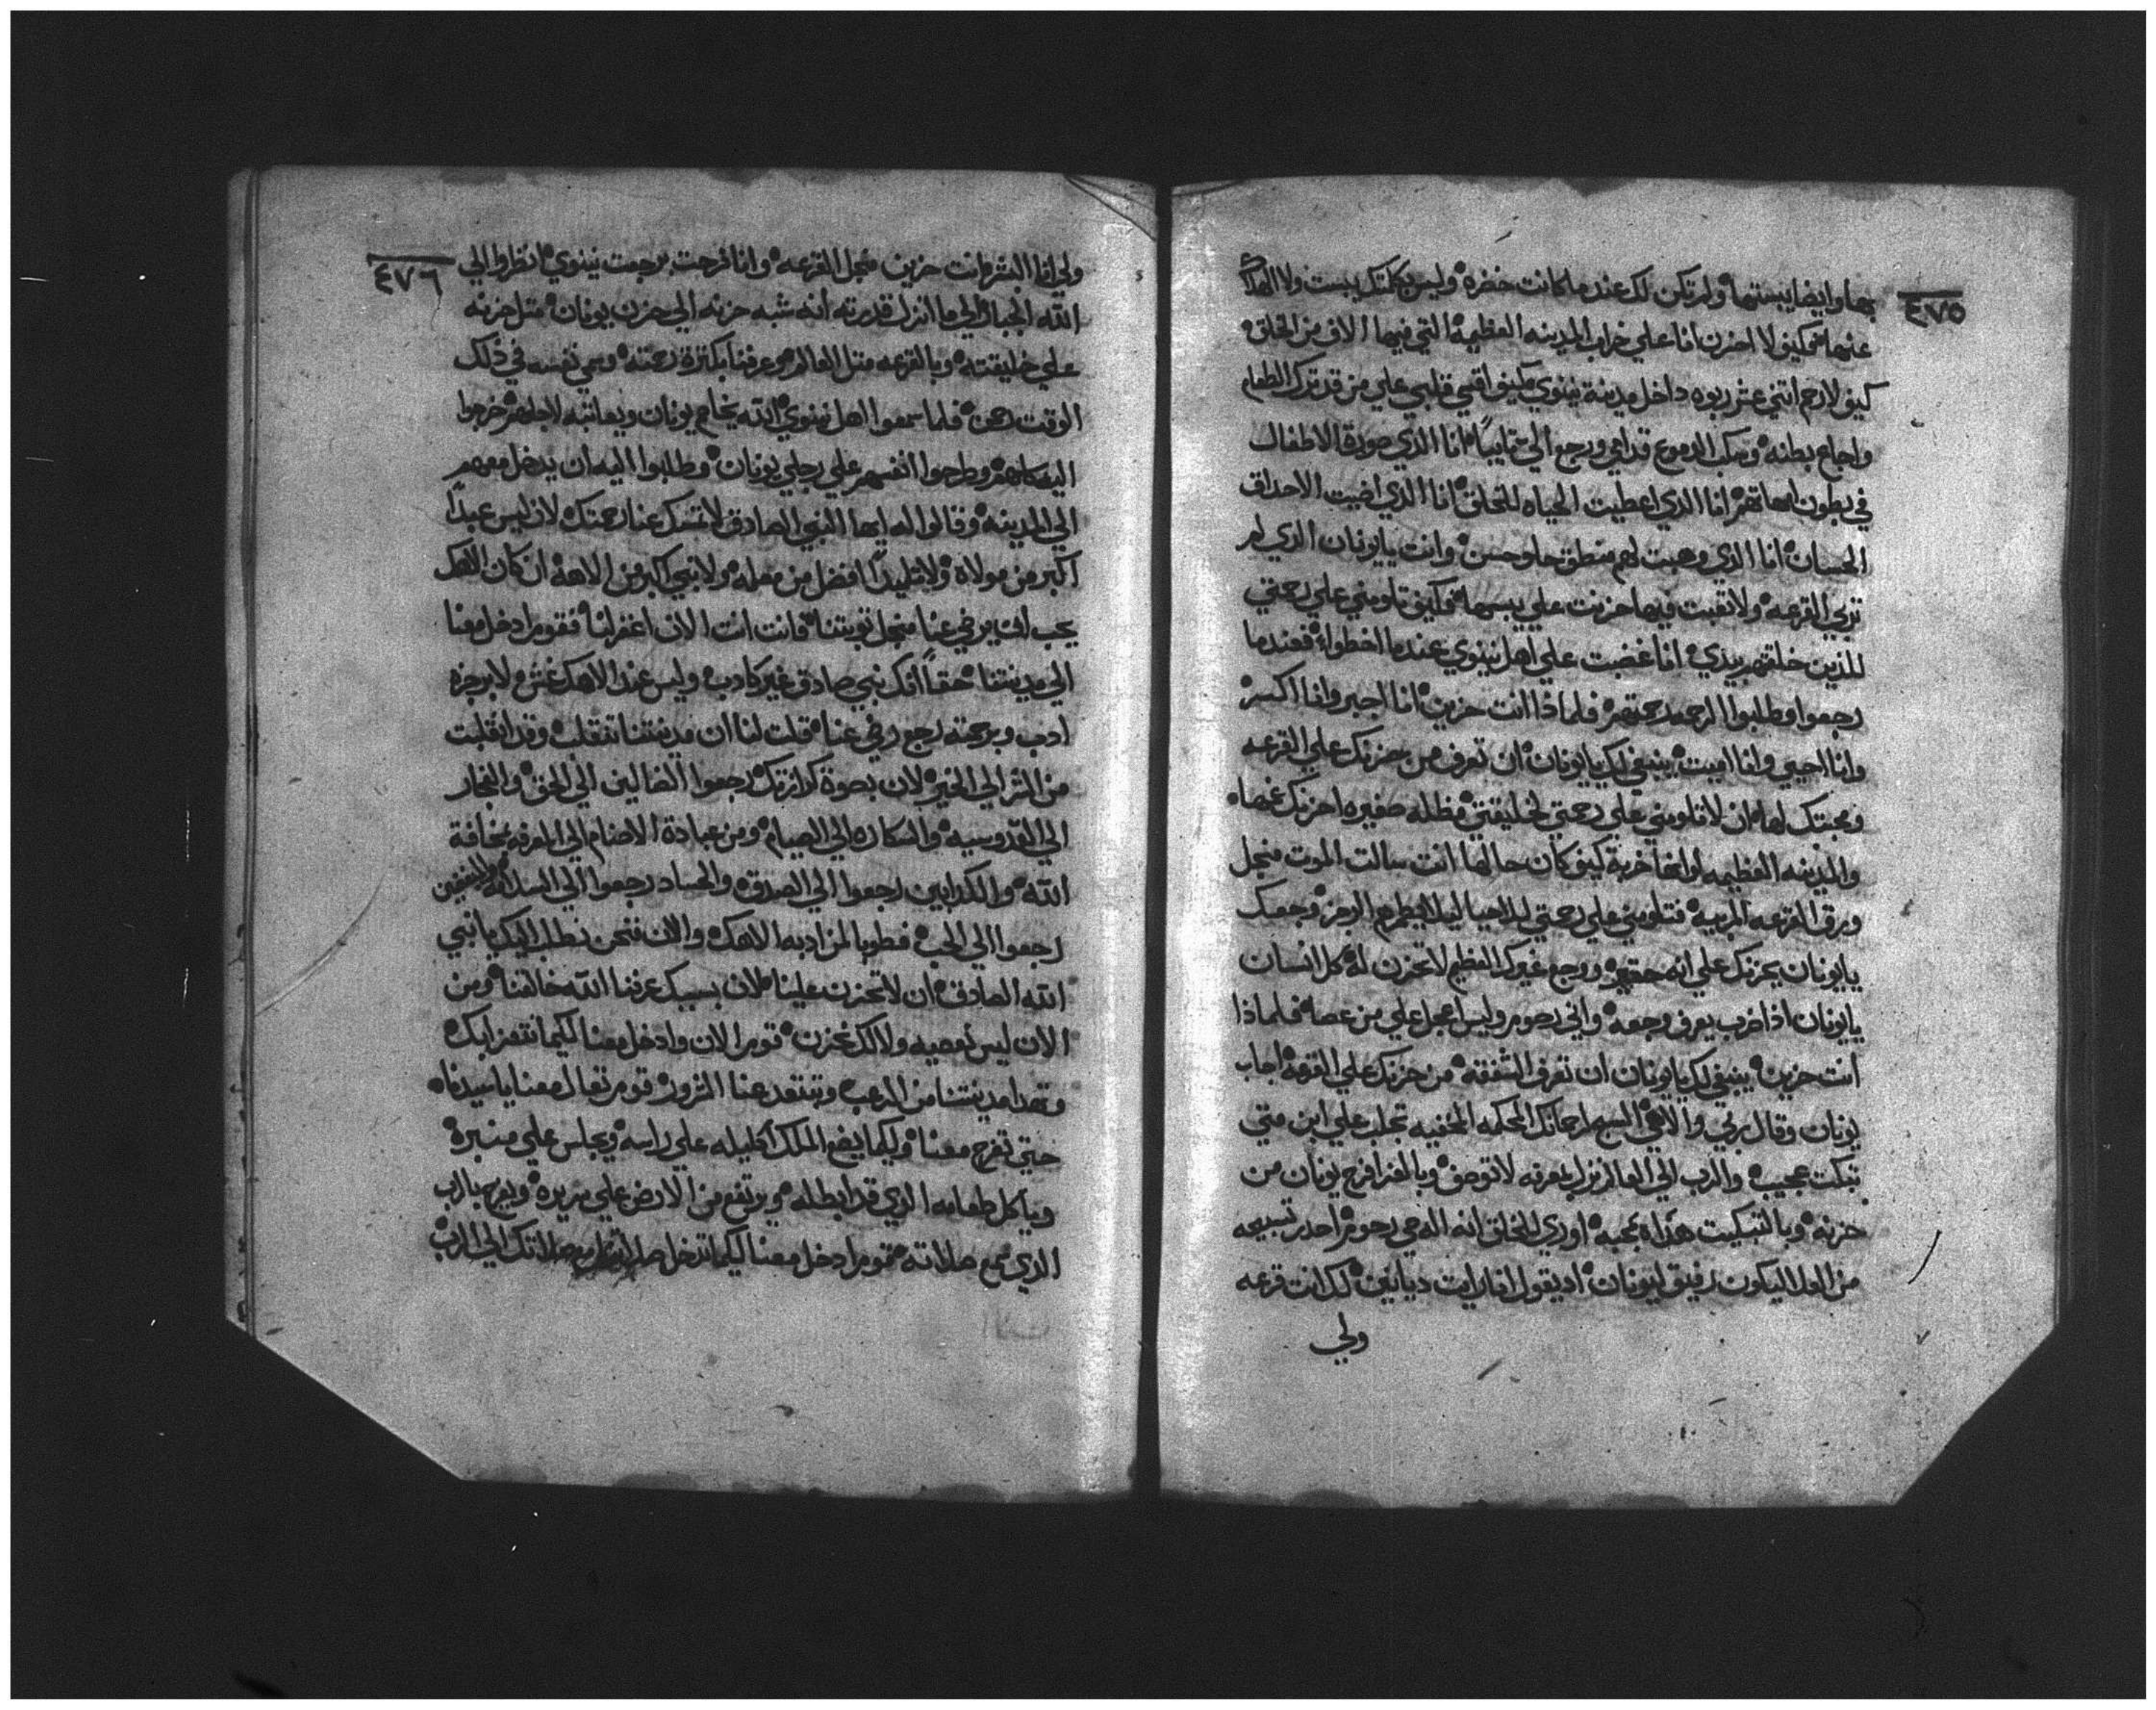 ٤٧٥
بها وايضا يبستها ولم تكن لك عندما كانت خضره وليس بكلمتك يبست ولا
عنها فكيف لا احزن انا علي خراب المدينه العظيمة التي فيها الاف من الخلق
كيف لا ارحم اتني عشر ربوه داخل مدينة نينوي كيف اقسي قلبي علي من قد ترك الطعام
واجاع بطنه وسكب الدموع قدامي ورجع الي تايباً انا الذي صورة الاطفال
في بطون امهاتهم انا الذي اعطيت الحياه للخلق انا الذي اضيت الاحداق
الحسان انا الذي وهبت لهم منطق حلو حسن وانت يا يونان الذي لم
تربي القرعه ولا تعبت فيها حزنت علي يبسها فكيف تلومني علي رحمتي
للذين خلقتهم بيدي انا غضبت علي اهل نينوي عندما اخطوا فعندما
رجعوا وطلبوا الرحمه رحمتهم فلماذا انت حزين انا اجبر وانا اكسر
وانا احيي وانا اميت ينبغي لك يا يونان ان تعرف من حزنك علي القرعه
ومحبتك لها ان لا تلومني علي رحمتي لخليقتي مظله صغيره احزنك غيها
والمدينه العظيمه لو انها خربة كيف كان حالها انت سالت الموت منجل
ورق القرعه المربيه فتلومني علي رحمتي
يا يونان يحزنك علي انه حقير ووجع غيرك العظيم لا تحزن له كل انسان
يا يونان اذا ضرب يعرف وجعه واني رحوم وليس اعجل علي من عصاه فلماذا
انت حزين ينبغي لك يا يونان ان تعرف الشفقه من حزنك علي القرعه اجاب
يونان وقال ربي والاهي السبح لرحمانك المحكمه المخفيه تجلب علي ابن متي
تبكت عجيب والرب الي العالم نزل بمعرفه لا توصف وبالعزا فرح يونان من
حزنه وبالتبكيت هداه بمحبه اوري للخلق انه اله حي رحوم احدر تسبيحه
من العلا ليكون رفيق ليونان اد يقول انا رايت ديانين كد انت قرعه
ولي
٤٧٦
ولي انا البشر وانت حزين منجل القرعه وانا فرحت برجعت نينوي انظروا الي
الله الجبار الي ما انزل قدرته انه شبه حزنه الي حزن يونان متل حزنه
علي خليقته وبالقرعه متل العالم وعرفنا بكترة رحمته وسمي نفسه في ذلك
الوقت فلما سمعوا اهل نينوي الله يخاصم يونان ويعاتبه لاجلهم خرجوا
اليه كلهم وطرحوا انفسهم علي رجلي يونان وطلبوا اليه ان يدخل معهم
الي المدينه وقالوا له ايها النبي الصادق لا تمسك عنا رحمتك لان ليس عبداً
اكبر من مولاه ولا تلميداً افضل من معلمه ولا نبي اكبر من الاهه ان كان الاهك
يحب ان يرضي عنا منجل توبتنا فانت انت الان اغفر لنا فقوم ادخل معنا
الي مدينتنا حقاً انك نبي صادق غير كادب وليس عند الاهك غش ولا برجزه
ادب وبرحمته رجع رضي عنا قلت لنا ان مدينتنا تنقلب وقد انقلبت
من الشر الي الخير لان بصوة كرازتك رجعوا الضالين الي الحق والفجار
الي القدوسيه والسكاره الي الصيام ومن عبادة الاصنام الي المعرفه بمخافة
الله والكدابين رجعوا الي الصدق والحساد رجعوا الي السلامه
رجعوا الي الحب فطوبا لمن ادبه الاهك والان فنحن نطلب اليك يا نبي
الله الصادق ان لا تحزن علينا لان بسببك عرفنا الله خالقنا ومن
الان ليس نعصيه ولا لك نحزن قوم الان وادخل معنا لكيما نتعزا بك
وتهدا مدينتنا من الرعب وتفتقد عنا الشرور قوم تعال معنا يا سيدنا
حتي تفرح معنا ولكيما يضع الملك اكليله علي راسه ويجلس علي منبره
وياكل طعامه الذي قد ابطله ويرتفع من الارض علي سريره ويفرح بالرب
الذي سمع صلاته فقوم ادخل معنا لكيما تدخل صلاتك الي الرب